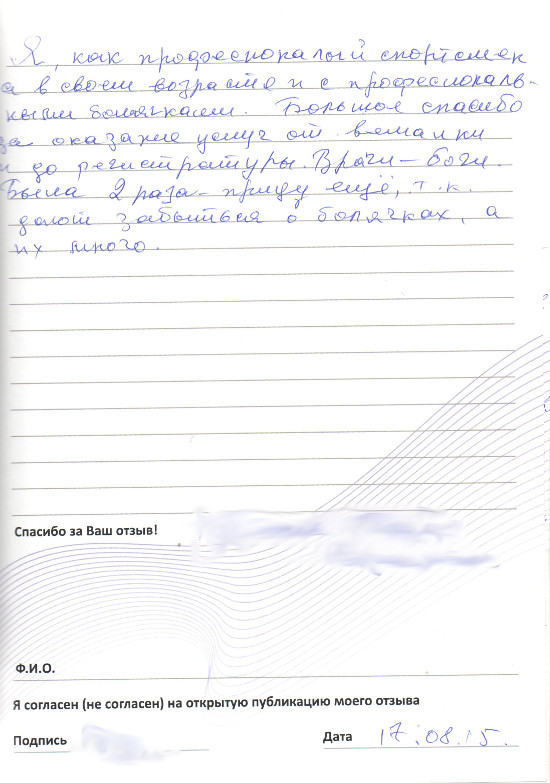 Я, как професиокалый спортсмен
а в своем возрасте и с професиональ-
ными болячками. Большое спасибо
за оказание услуг от вешалки
и до регистратуры. Врачи – боги.
Была 2 раза – приду ещё, т.к.
забыться о болячках, а
их много.
Спасибо за Ваш отзыв!
Ф.И.О.
Я согласен (не согласен) на открытую публикацию моего отзыва
Подпись
Дата 17.08.15.